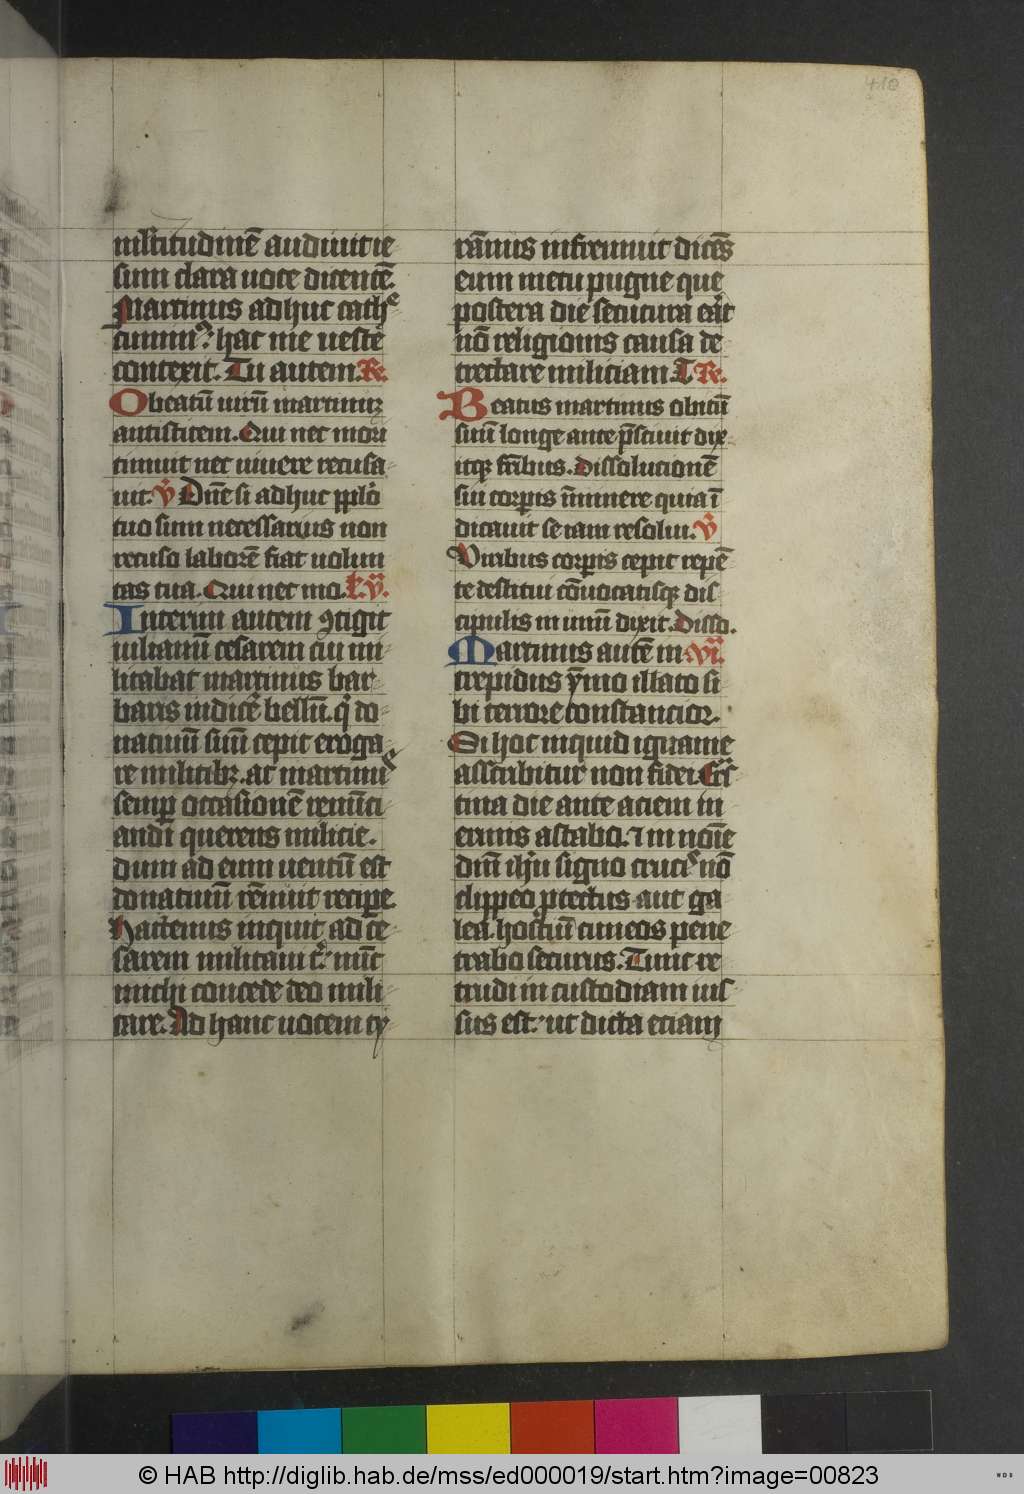 410
multitudinē audiuit ie
sum clara uoce dicentē.
Martinus adhuc cathe
cuminꝰ hac me ueste
contexit. Tu autem. R̃.
O beatū uirū martinū
antistitem. Qui nec mori
timuit nec uiuere recusa
uit. v̄ Dn̄e si adhuc ppl̄o
tuo sum necessarius non
recuso laborē fiat uolun
tas tua. Qui nec mo. l̄. v̄.
Interim autem ꝯtigit
iulianū cesarem cui mi
litabat martinus bar
baris indicē bellū. q̄ do
natiuū suū cepit eroga
re militibꝫ. at martinꝰ
semꝑ occasionē renūci
andi querens milicie.
dum ad eum uentū est
donatiuū rēnuit recipe
Hactenus inquit ad ce
sarem militaui t'. nūc
michi concede deo mili
tare. Ad hanc uocem ty
rānus infremuit dicēs
eum metu pugne que
postera die secutura erat
nō religionis causa de
trectare miliciam. T R̃.
Beatus martinus obitū
suū longe ante p̄sciuit dix
itqꝫ fr̄ibus. Dissolucionē
sui corpis īminere quia ī
dicauit se iam resolui. v̄
Viribus corpis cepit repē
te destitui cōuocatisqꝫ dis
cipulis in unū dixit. Disso.
Martinus autē in vi.
trepidus ymo illato si
bi terrore constancior.
Si hoc inquid ignauie
asscribitur non fidei. Cͣs
tina die ante aciem in
ermis astabo. ⁊ in noīe
dn̄i ih̄u signo crucis nō
clippeo ꝓtectus aut ga
lea. hostiū cuneos pene
trabo securus. Tunc re
trudi in custodiam ius
sus est. ut dicta eciam
© HAB http://diglib.hab.de/mss/ed000019/start.htm?image=00823
WDB